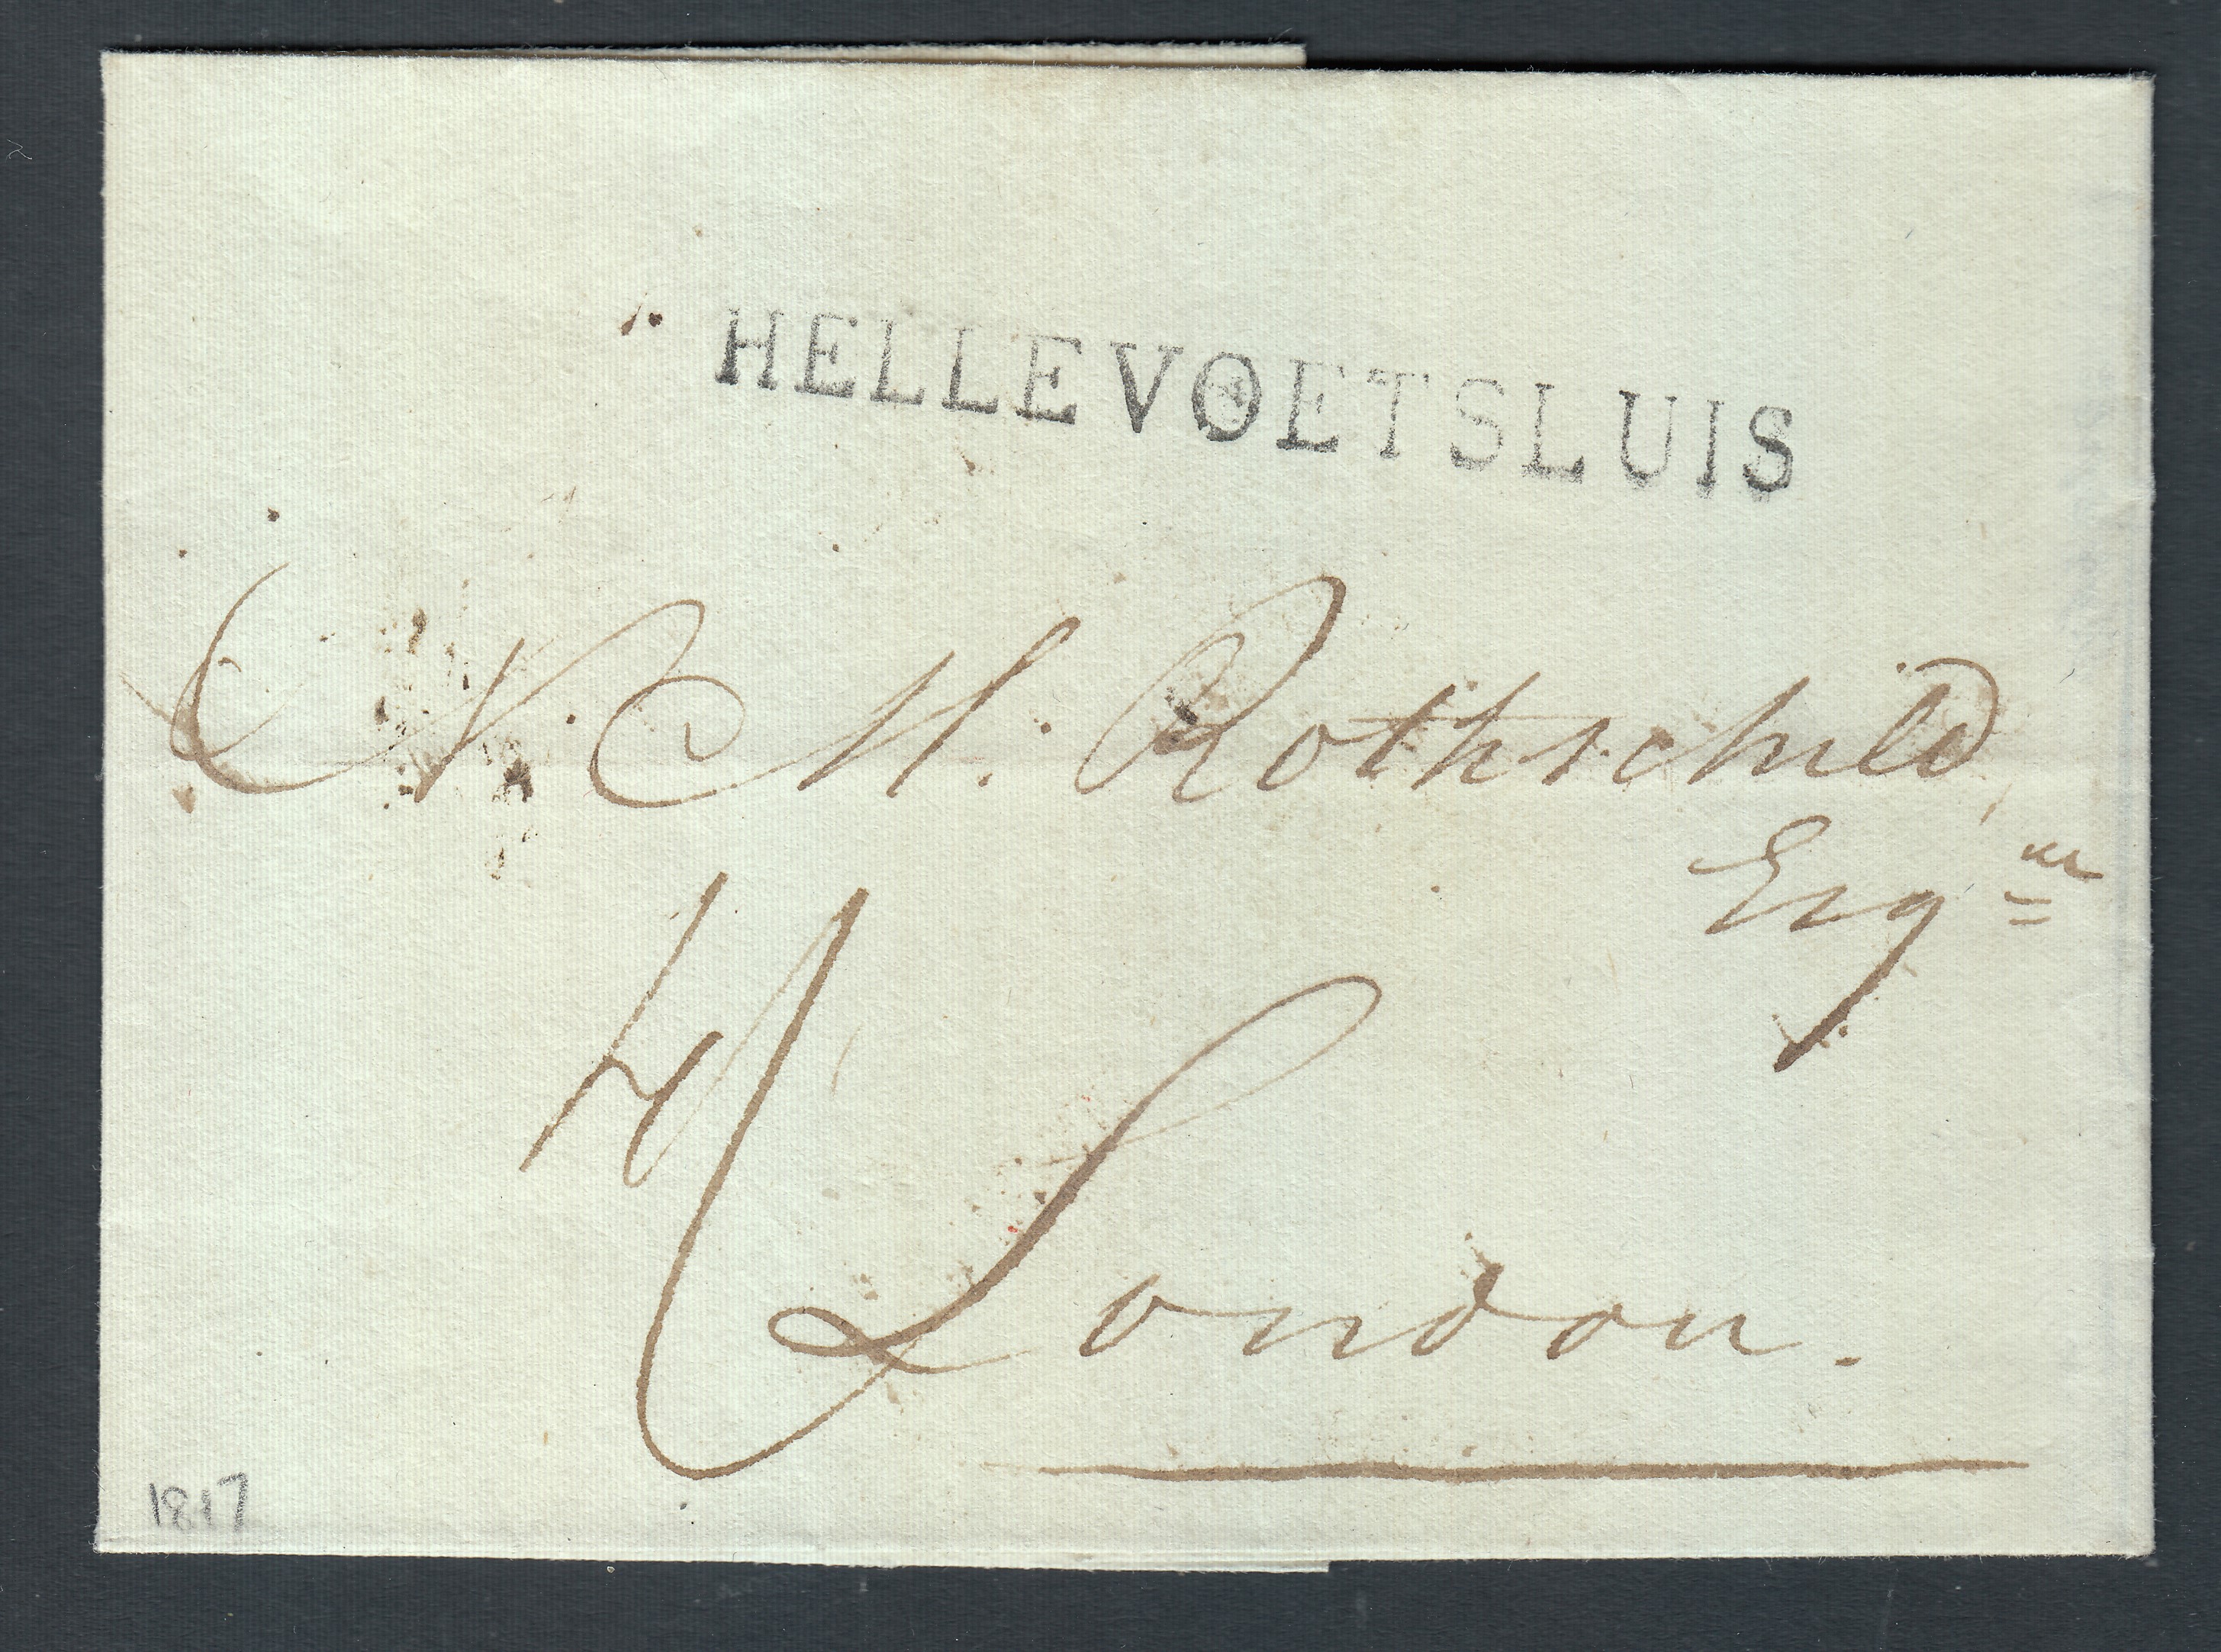 HELLEVOETSLUIS
N. M. Rothschild,
Esqre
London.
1817